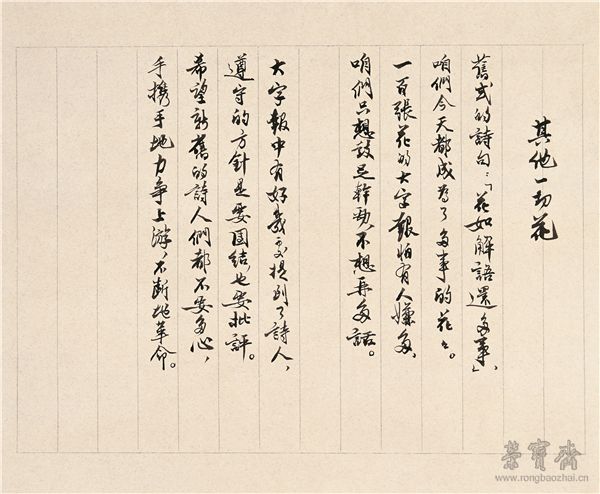 其他一切花
舊式的詩句:「花如解語還多事」、
咱們今天都成爲了多事的花々。
一百張花的大字報怕有人嫌多、
咱們只想鼓足幹勁、不想再多話。
大字報中有好幾次提到了詩人,
遵守的方針是要團結也要批評。
希望新舊的詩人們都不要多心,
手携手地力争上游、不斷地革命。
榮寶齋
www.rongbaozhai.cn